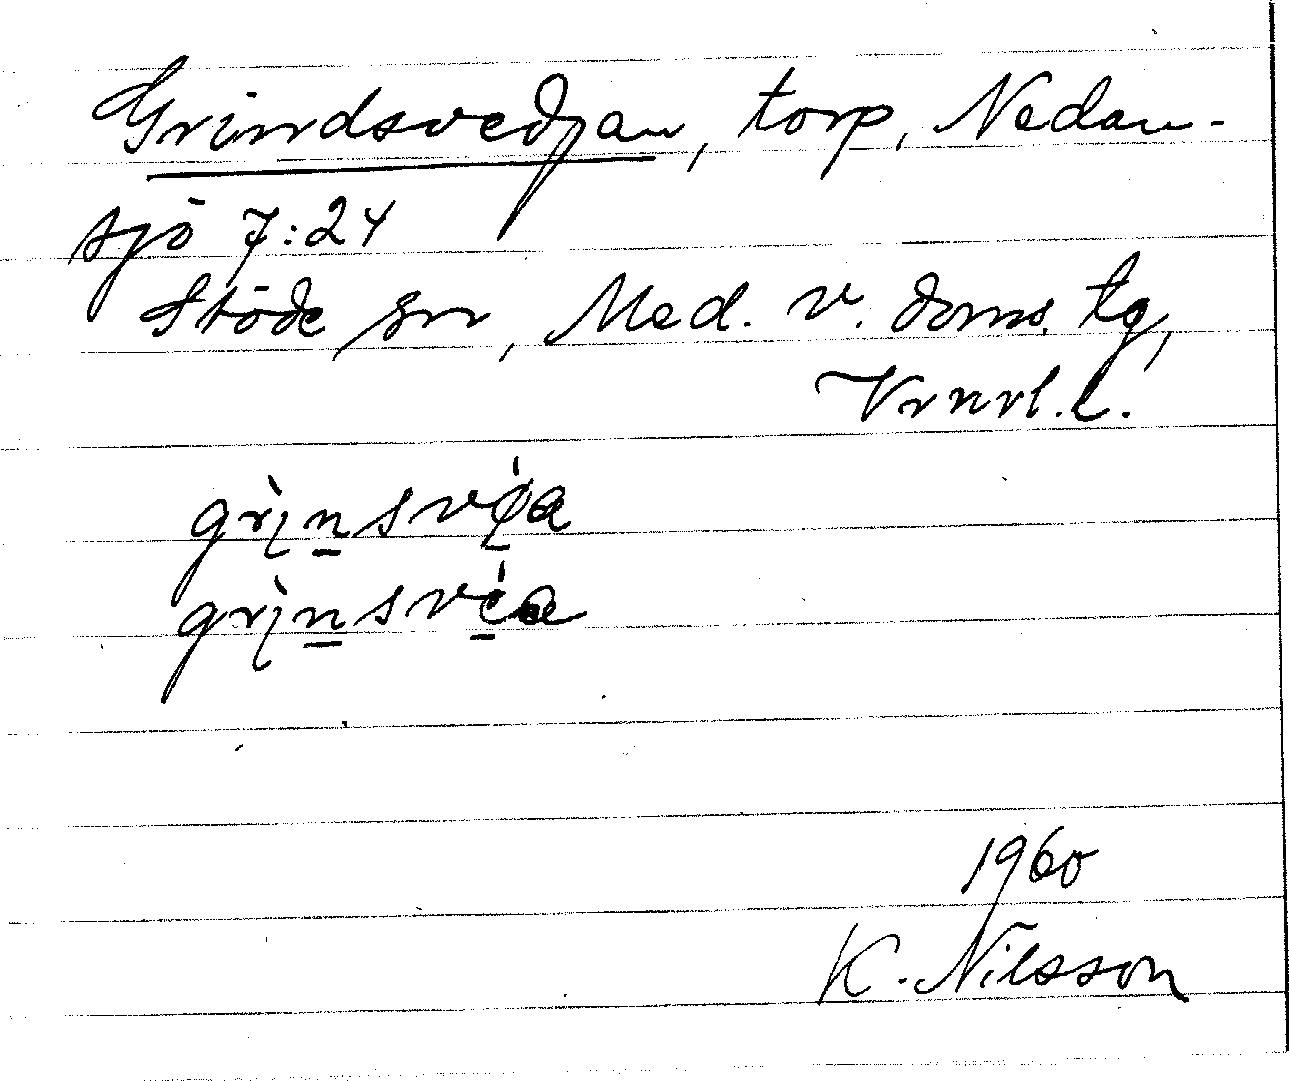 Grindsvedjan, torp, Nedan-
sjö 7:24
Stöde sn, Med. v. doms. tg,
Vrnrl. l.
grı̀n̲své̲a
grı̀n̲své̲a
1960
K. Nilsson